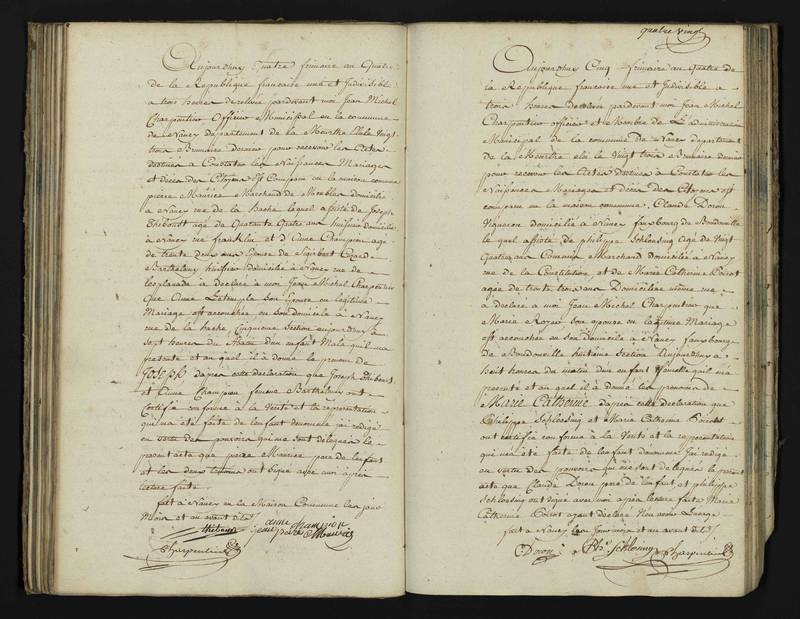 Aujourdhuy Quatre frimaire an Quatre
de la Republique francaise une et Indivisible
a trois heures de relevée pardevant moi Jean Michel
Charpentier Officier Municipal en la commune
de Nancy Departement de la Meurthe Elû le Vingt
trois Brumaire dernier pour recevoir les Actes
destinés a Constater les Naissances Mariages
et décès des Citoyens Est Comparu en la maison commune
pierre Maurice Marchand de Meubles domicilié
a Nancy rue de la hache lequel assisté de Joseph
Thiboust agé de Quarante Quatre ans huissier domicilié
à Nancy rue franklin et d'Anne Champion agé
de trente deux ans Epouse de Sigisbert
Barthelemy huissier Domicilié a Nancy rue de
l'esplanade a declaré a moi Jean Michel Charpentier
Que Anne son Epouse en légitime
Mariage est accouchée en son domicile a Nancy
rue de la hache Cinquieme Section aujourdhuy à
sept heures du Matin d'un enfant Male quil ma
presenté et au quel il a donné le prenom de
Joseph dapres cette déclaration que Joseph Thiboust
et Anne Champion femme Barthelemy ont
Certifié conforme à la Verité et la représentation
qui m'a été faite de l'enfant denommé jai redigé
en vertu des pouvoirs qui me sont délegués le
présent acte que pierre Maurice pere de l'enfant
et les deux témoins ont signé avec moi après
lecture faite
fait a Nancy en la Maison Commune les jour
Mois et an avant dits
anne champion
thiboust pierre Maurice
Charpentier
quatre vingt
Aujourdhuy Cinq frimaire an Quatre de
la Republique francaise une et Indivisible a
trois heures de relevée pardevant moi Jean Michel
Charpentier officier et Membre de L'administration
Municipal de la commune de Nancy departement
de la Meurthe elû le Vingt trois Brumaire dernier
pour recevoir les Actes destinés à Constater les
Naissances Mariages et décès des Citoyens est
comparu en la maison commune Claude Doron
Vigneron domicilié à Nancy faux bourg de Boudonville
le quel assisté de philippe Schloesing agé de Vingt
Quatre ans Commis Marchand domicilié a Nancy
rue de la Constitution et de Marie Catherine
agée de trente trois ans Domiciliée même rue
a déclaré a moi Jean Michel Charpentier que
Marie Royer son épouse en légitime Mariage
est accouchée en son domicile a Nancy faux bourg
de Boudonville huitieme Section Aujourdhuy a
huit heures du matin d'un enfant femelle quil m'a
presenté et au quel il à donné les prenoms de
Marie Catherine dapres cette déclaration que
Philippe Schloesing et Marie Catherine
ont certifié conforme à la Verité et la representation
qui m'a été faite de l'enfant denommé jai redigé
en vertu des pouvoirs qui me sont delegués le présent
acte que Claude Doron pere de l'enfant et philippe
Schloesing ont signé avec moi après lecture faite Marie
Catherine ayant declaré Non avoir L'usage
fait a Nancy les jour mois et an avant dits
Doron Ph. Schloesing Charpentier